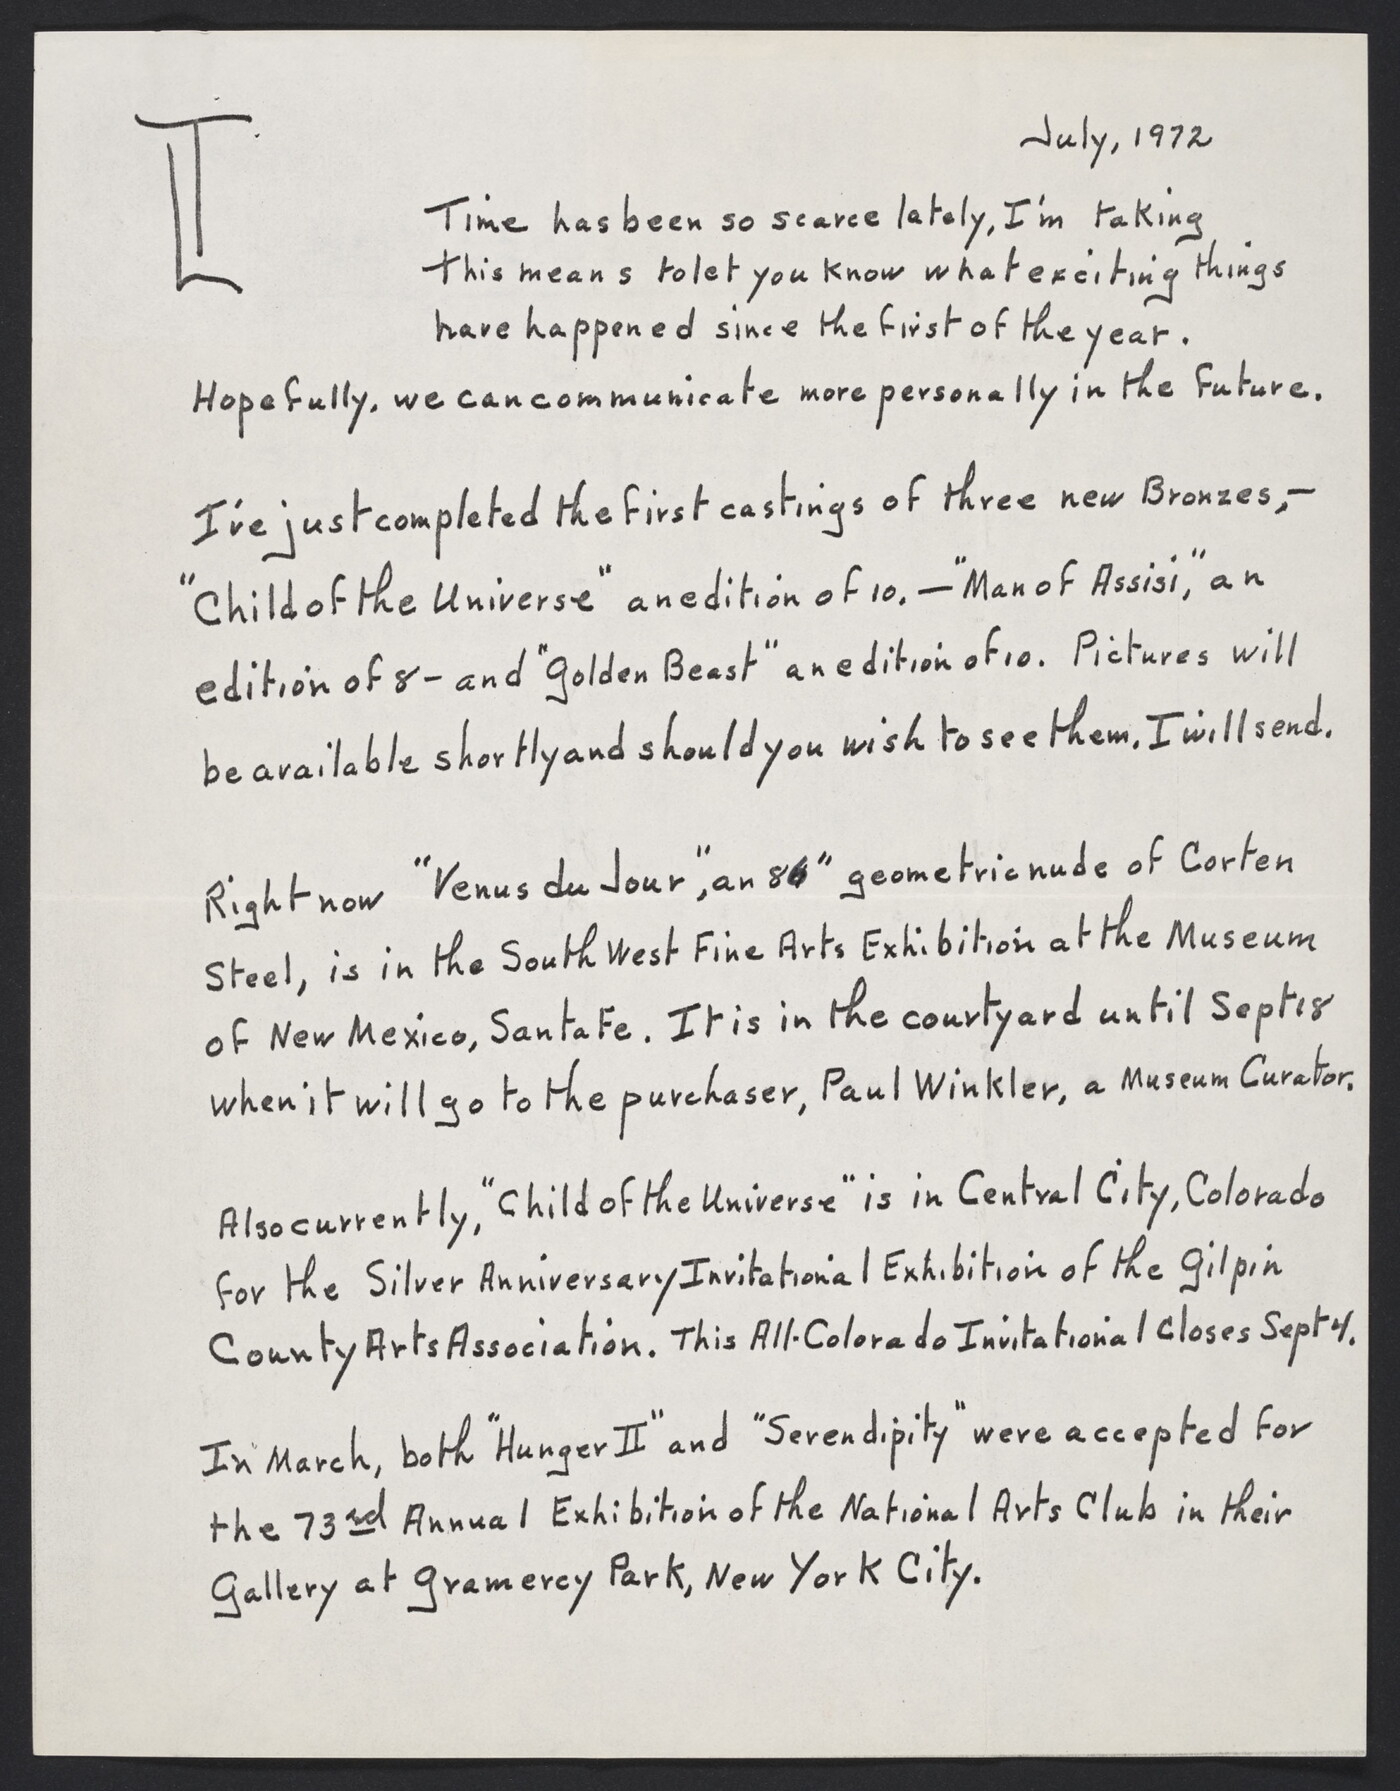 July, 1972
Time has been so scarce lately, I'm taking
this means to let you know what exciting things
have happened since the first of the year.
Hopefully, we can communicate more personally in the future.
I've just completed the first castings of three new Bronzes,-
"Child of the Universe" an edition of 10. — "Man of Assisi," an
edition of 8 - and "Golden Beast" an edition of 10. Pictures will
be available shortly and should you wish to see them, I will send.
Right now "Venus du Jour", an 86" geometric nude of Corten
Steel, is in the South West Fine Arts Exhibition at the Museum
of New Mexico, Santa Fe. It is in the courtyard until Sept 18
when it will go to the purchaser, Paul Winkler, a Museum Curator.
Also currently, "Child of the Universe" is in Central City, Colorado
for the Silver Anniversary Invitational Exhibition of the Gilpin
County Arts Association. This All-Colorado Invitational closes Sept 4.
In March, both "Hunger II" and "Serendipity" were accepted for
the 73rd Annual Exhibition of the National Arts Club in their
Gallery at Gramercy Park, New York City.